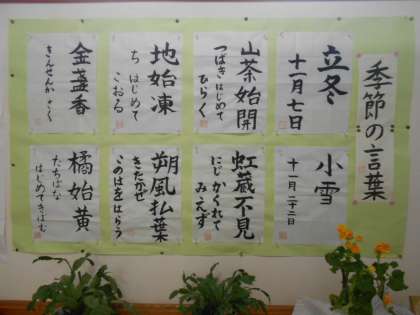 季節の言葉
立冬
十一月七日
山茶始開
つばきはじめて
ひらく
地始凍
ち はじめて
こおる
金盞香
きんせんか さく
小雪
十一月二十二日
虹蔵不見
にじかくれて
みえず
朔風払葉
きたかぜ
このはをはらう
橘始黄
たちばな
はじめてきばむ